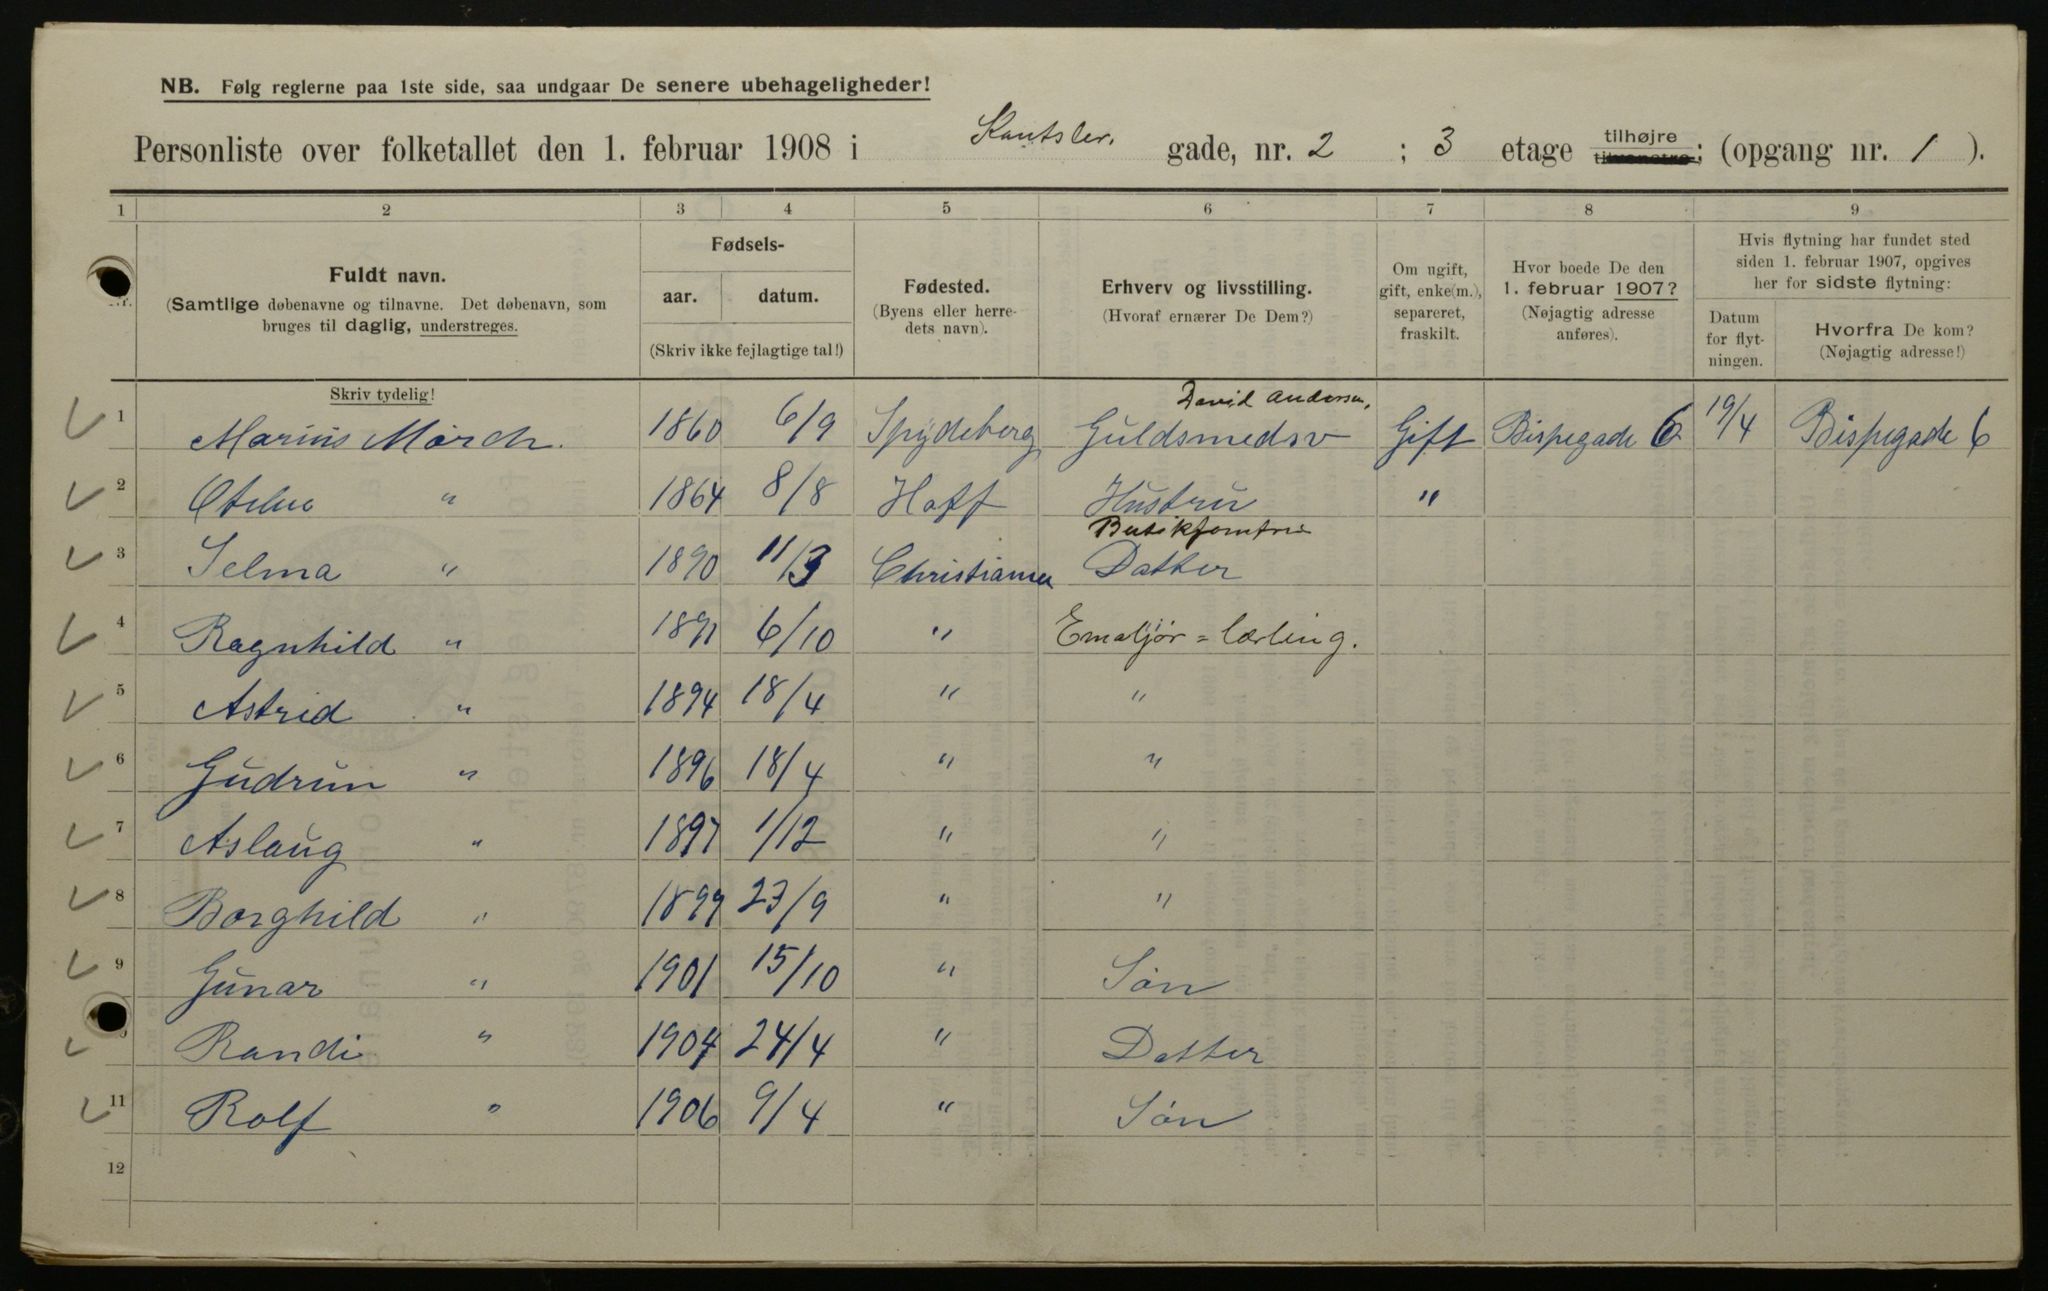 NB. Følg reglerne paa 1ste side, saa undgaar De senere ubehageligheder!
Personliste over folketallet den 1. februar 1908 i Kantsler. gade, nr. 2 ; 3 etage tilhøjre tilvenstre; (opgang nr. 1 ).
1 2 3 4 5 6 7 8 9
Nr.
Fuldt navn.
(Samtlige døbenavne og tilnavne. Det døbenavn, som
bruges til daglig, understreges.
Fødsels-
aar. datum.
(Skriv ikke fejlagtige tal!)
Fødested.
(Byens eller herre-
dets navn).
Erhverv og livsstilling.
(Hvoraf ernærer De Dem?)
Om ugift,
gift, enke(m.),
separeret,
fraskilt.
Hvor boede De den
1. februar 1907?
(Nøjagtig adresse
anføres).
Hvis flytning har fundet sted
siden 1. februar 1907, opgives
her for sidste flytning:
Datum
for flyt-
ningen.
Hvorfra De kom?
(Nøjagtig adresse!)
Skriv tydelig!
David Andersen,
1 Marius Mørch. 1860 6/9 Spydeberg Guldsmedsv Gift Bispegade 6 19/4 Bispegade 6
2 " 1864 8/8 Hoff Hustru "
3 Selma " 1890 11/3 Christiania Datter
4 Ragnhild " 1891 6/10 " Emaljør = lærling.
5 Astrid " 1894 18/4 " "
6 Gudrun " 1896 18/4 " "
7 Aslaug " 1897 1/12 " "
8 Borghild " 1899 23/9 " "
9 Gunar " 1901 15/10 " Søn
Randi " 1904 24/4 " Datter
11 Rolf " 1906 9/4 " Søn
12